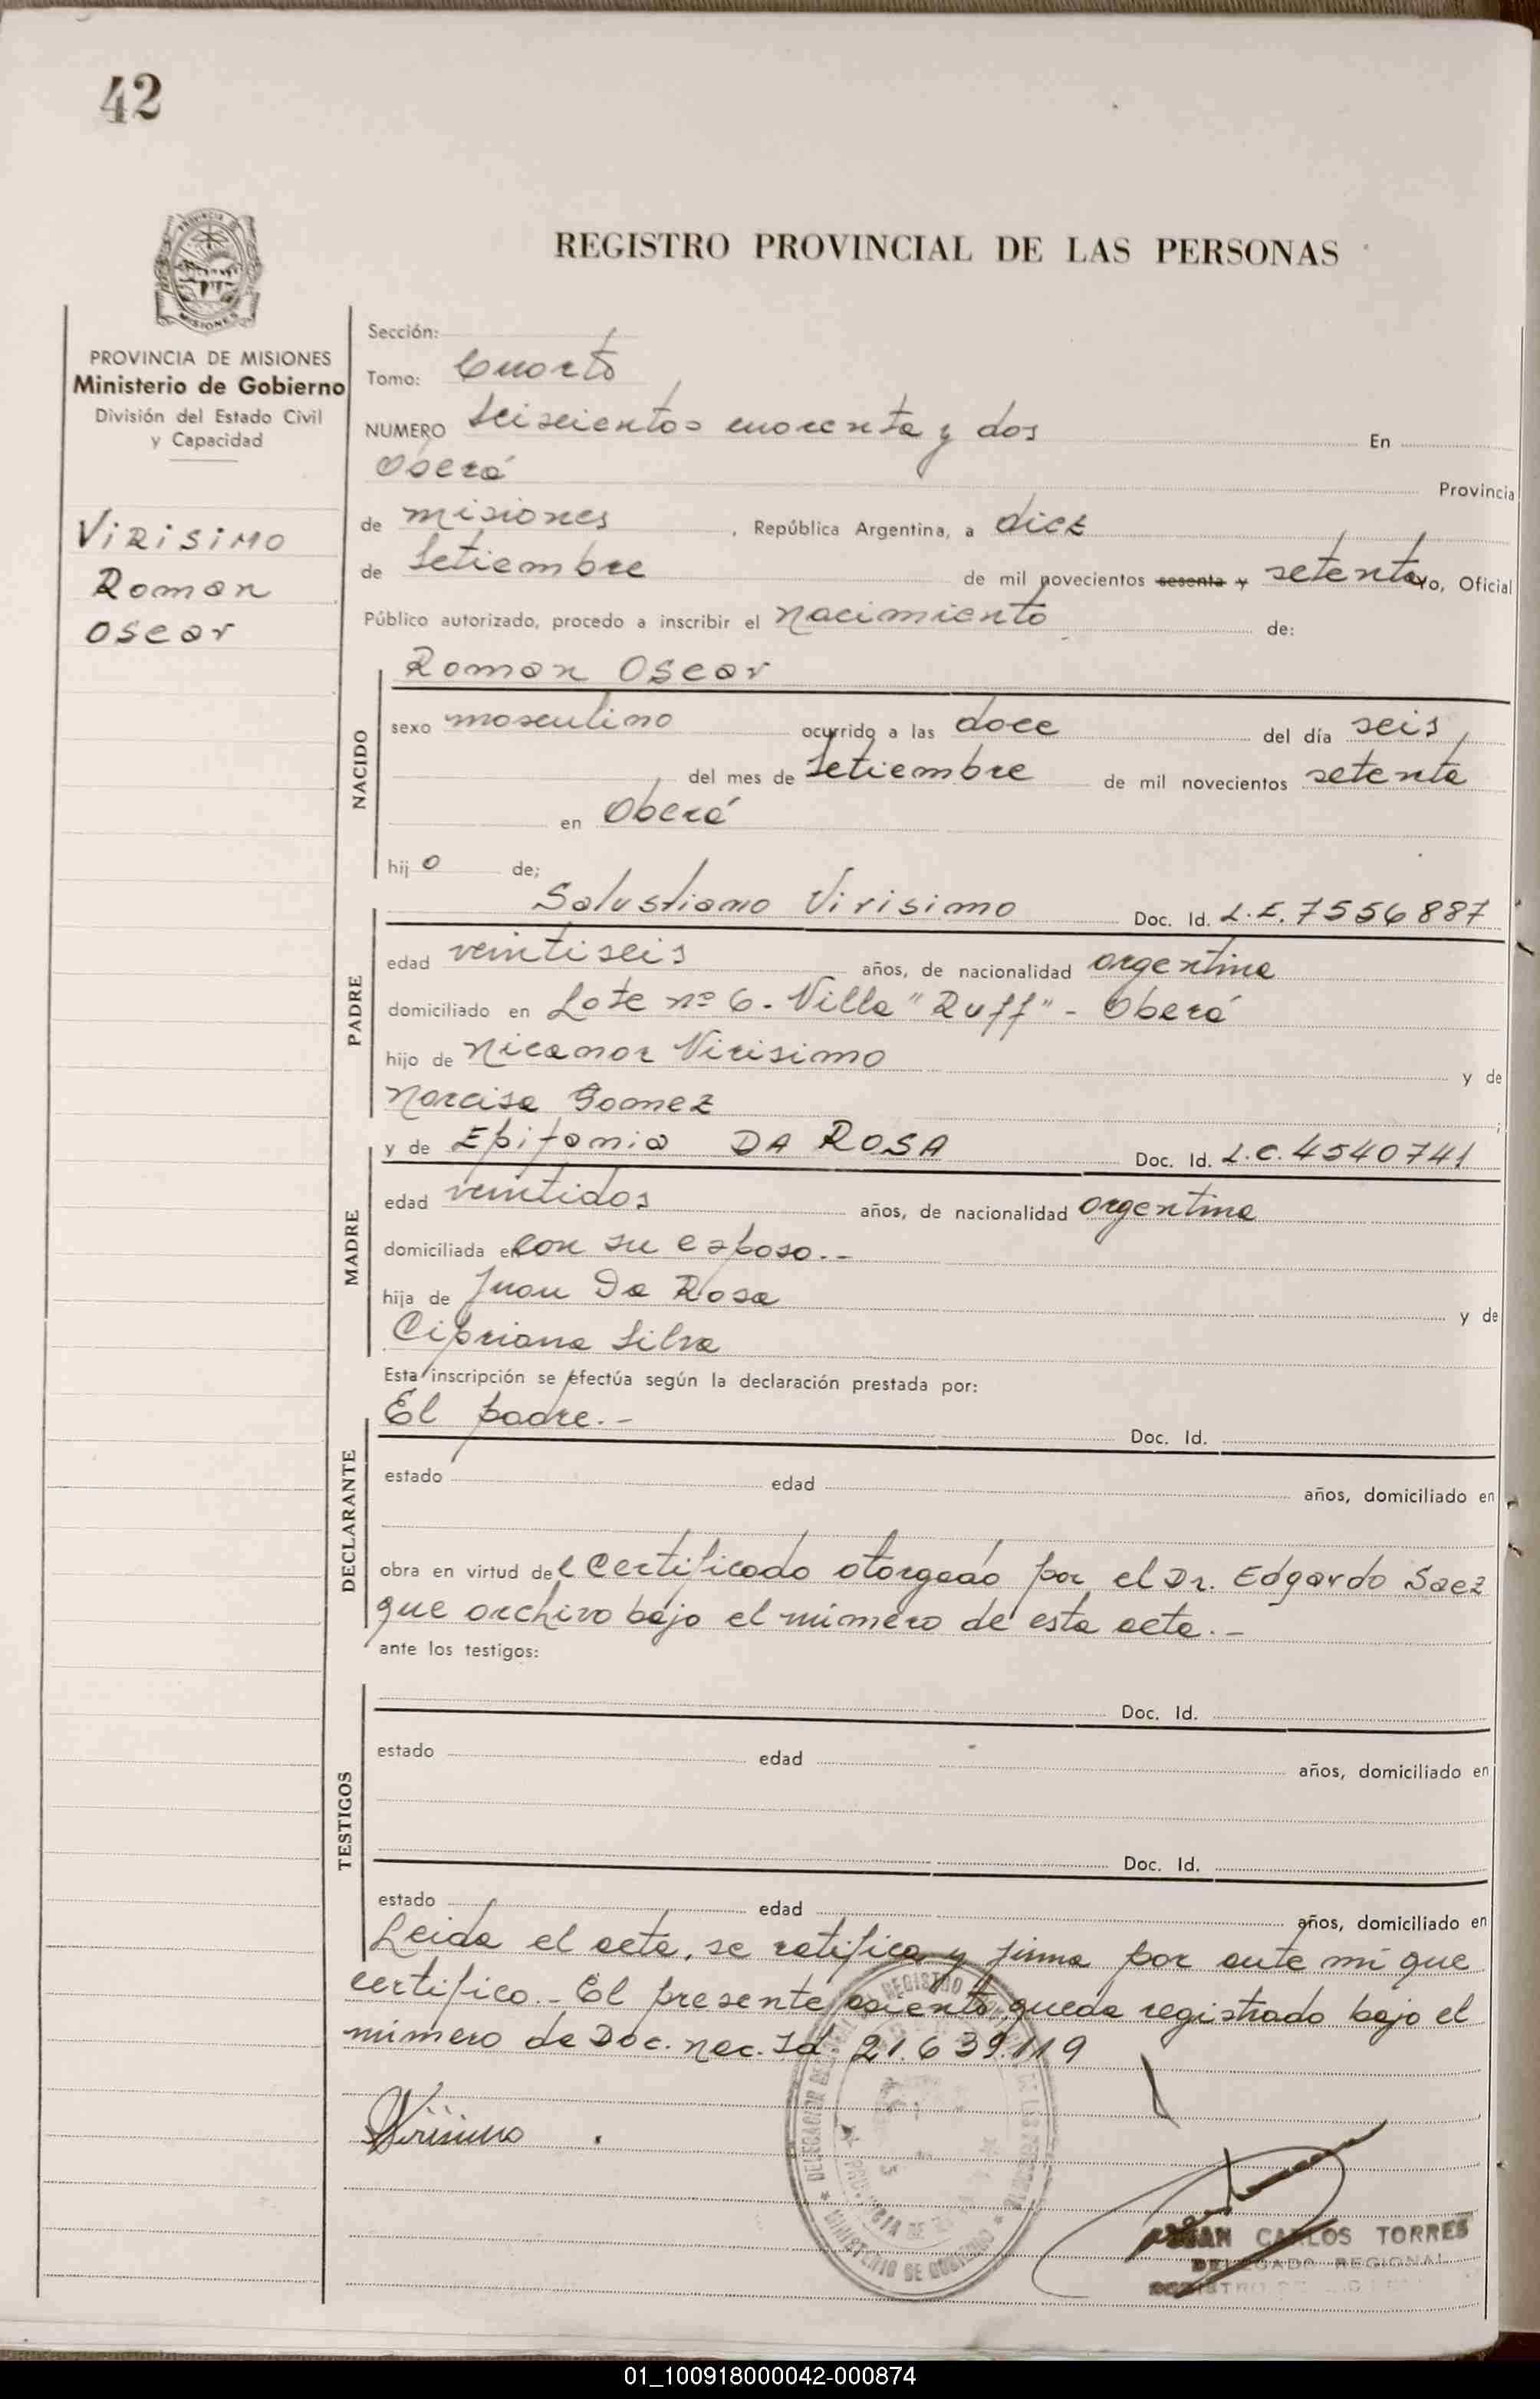 42
REGISTRO PROVINCIAL DE LAS PERSONAS
MISIONES
PROVINCIA DE MISIONES
Ministerio de Gobierno
División del Estado Civil
y Capacidad
VIRISIMO
Roman
Oscar
Sección:
Tomo: Cuarto
NUMERO Seiscientos cuarenta y dos En
Oberá Provincia
de misiones, República Argentina, a diez
de Setiembre de mil novecientos sesenta y setenta yo, Oficial
Público autorizado, procedo a inscribir el nacimiento de:
NACIDO
Roman Oscar
sexo masculino ocurrido a las doce del día seis
del mes de Setiembre de mil novecientos setenta
en Oberá
hijo de;
PADRE
Salustiano Virisimo Doc. Id. L.E. 7556887
edad veintiseis años, de nacionalidad argentina
domiciliado en Lote nº 6 - Villa "Ruff" - Oberá
hijo de Nicanor Virisimo y de
Narcisa Gomez
MADRE
y de Epifania DA ROSA Doc. Id. L.C. 4540741
edad veintidos años, de nacionalidad argentina
domiciliada en con su esposo.--
hija de Juan Da Rosa y de
Cipriana Silva
Esta inscripción se efectúa según la declaración prestada por:
DECLARANTE
El padre.- Doc. Id.
estado edad años, domiciliado en
obra en virtud del Certificado otorgado por el Dr. Edgardo Saez
que archivo bajo el número de esta acta.-
ante los testigos:
TESTIGOS
Doc. Id.
estado edad años, domiciliado en
Doc. Id.
estado edad años, domiciliado en
Leida el acta, se ratifica y firma por ante mí que
certifico.- El presente asiento queda registrado bajo el
número de Doc. Nac. Id 21.639.119
Virisimo
MINISTERIO DE GOBIERNO
JUAN CARLOS TORRES
DELEGADO REGIONAL
01_100918000042-000874